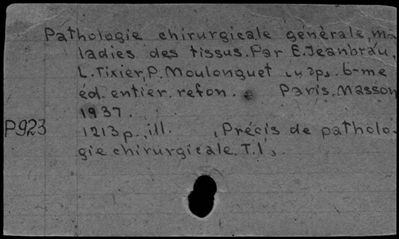 Pathologie chirurgicale générale, ma-
ladies des tissus. Par E. Jeanbrau,
L. Tixier, P. Moulonguet 6-me
éd. entier. refon. Paris, Masson
1937.
P923 1213 p., ill. (Précis de patholo-
gie chirurgicale. T.1).